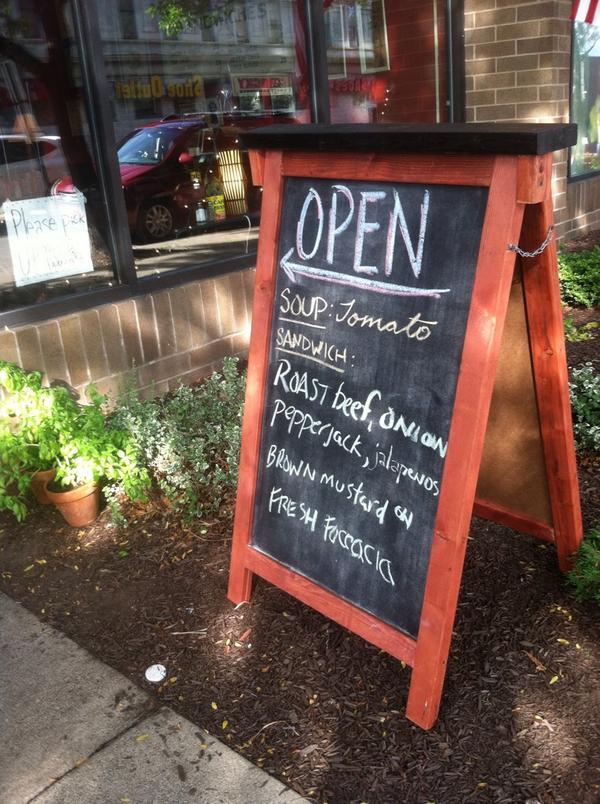 OPEN
SOUP: Tomato
SANDWICH:
ROAST beef, ONION
pepperjack, jalapenos
BROWN mustard on
FRESH Foccacia
Please pick
Up
Shoe Outlet